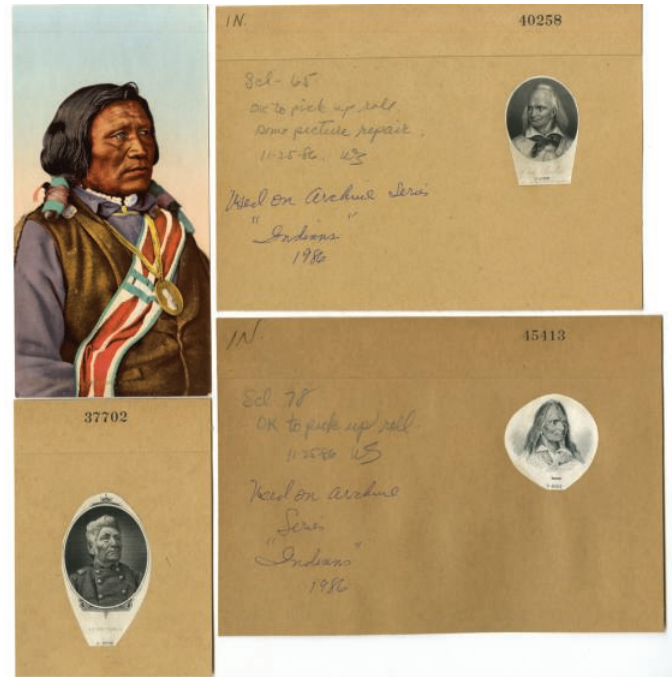 IN.
40258
Scl- 65
OK to pick up roll
some picture repair.
11-25-86 WS
Used on Archive Series
"Indians"
1986
IN.
45413
Scl 78
OK to pick up roll
11-25-86 WS
Used on Archive
Series
"Indians"
1986
37702